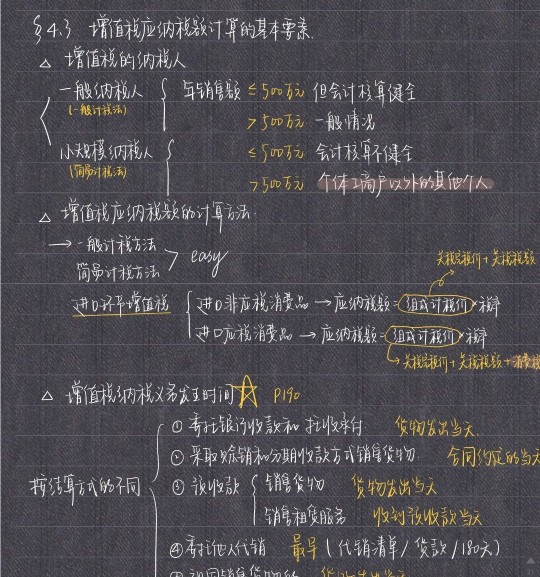 §4.3 增值税应纳税额计算的基本要素.
△ 增值税的纳税人
一般纳税人 年销售额 ≤500万元 但会计核算健全
(一般计税法)
>500万元 一般情况
小规模纳税人 ≤500万元 会计核算不健全
(简易计税法)
>500万元 个体工商户以外的其他个人
△ 增值税应纳税额的计算方法.
→ 一般计税方法
简易计税方法 > easy
关税完税价+关税税额
进口环节增值税 进口非应税消费品 → 应纳税额=组成计税价×税率
进口应税消费品 → 应纳税额=组成计税价×税率
关税完税价+关税税额+消费税
△ 增值税纳税义务发生时间 ☆ P190
按结算方式的不同
① 委托银行收款和托收承付. 货物发出当天
② 采取赊销和分期收款方式销售货物. 合同约定的当天
③ 预收款 销售货物 货物发出当天
销售租赁服务 收到预收款当天
④ 委托他人代销 最早(代销清单/货款/180天)